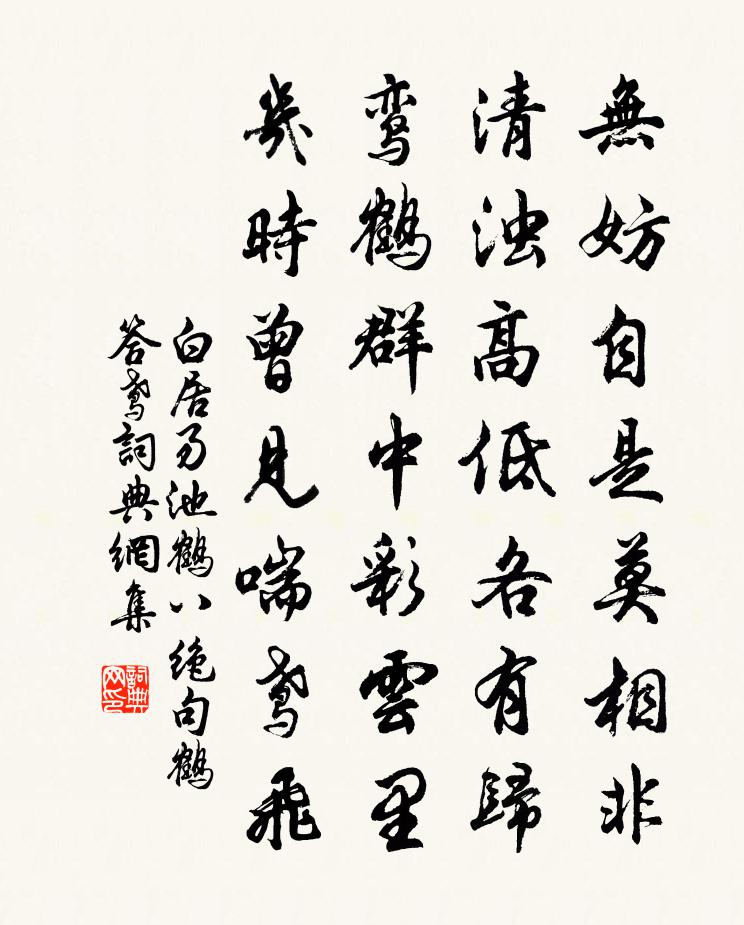 無妨自是莫相非
清浊高低各有歸
鸾鶴群中彩雲里
幾時曾見喘鸢飛
白居易池鶴八絶句鶴
答鸢詞典網集
詞典
网印